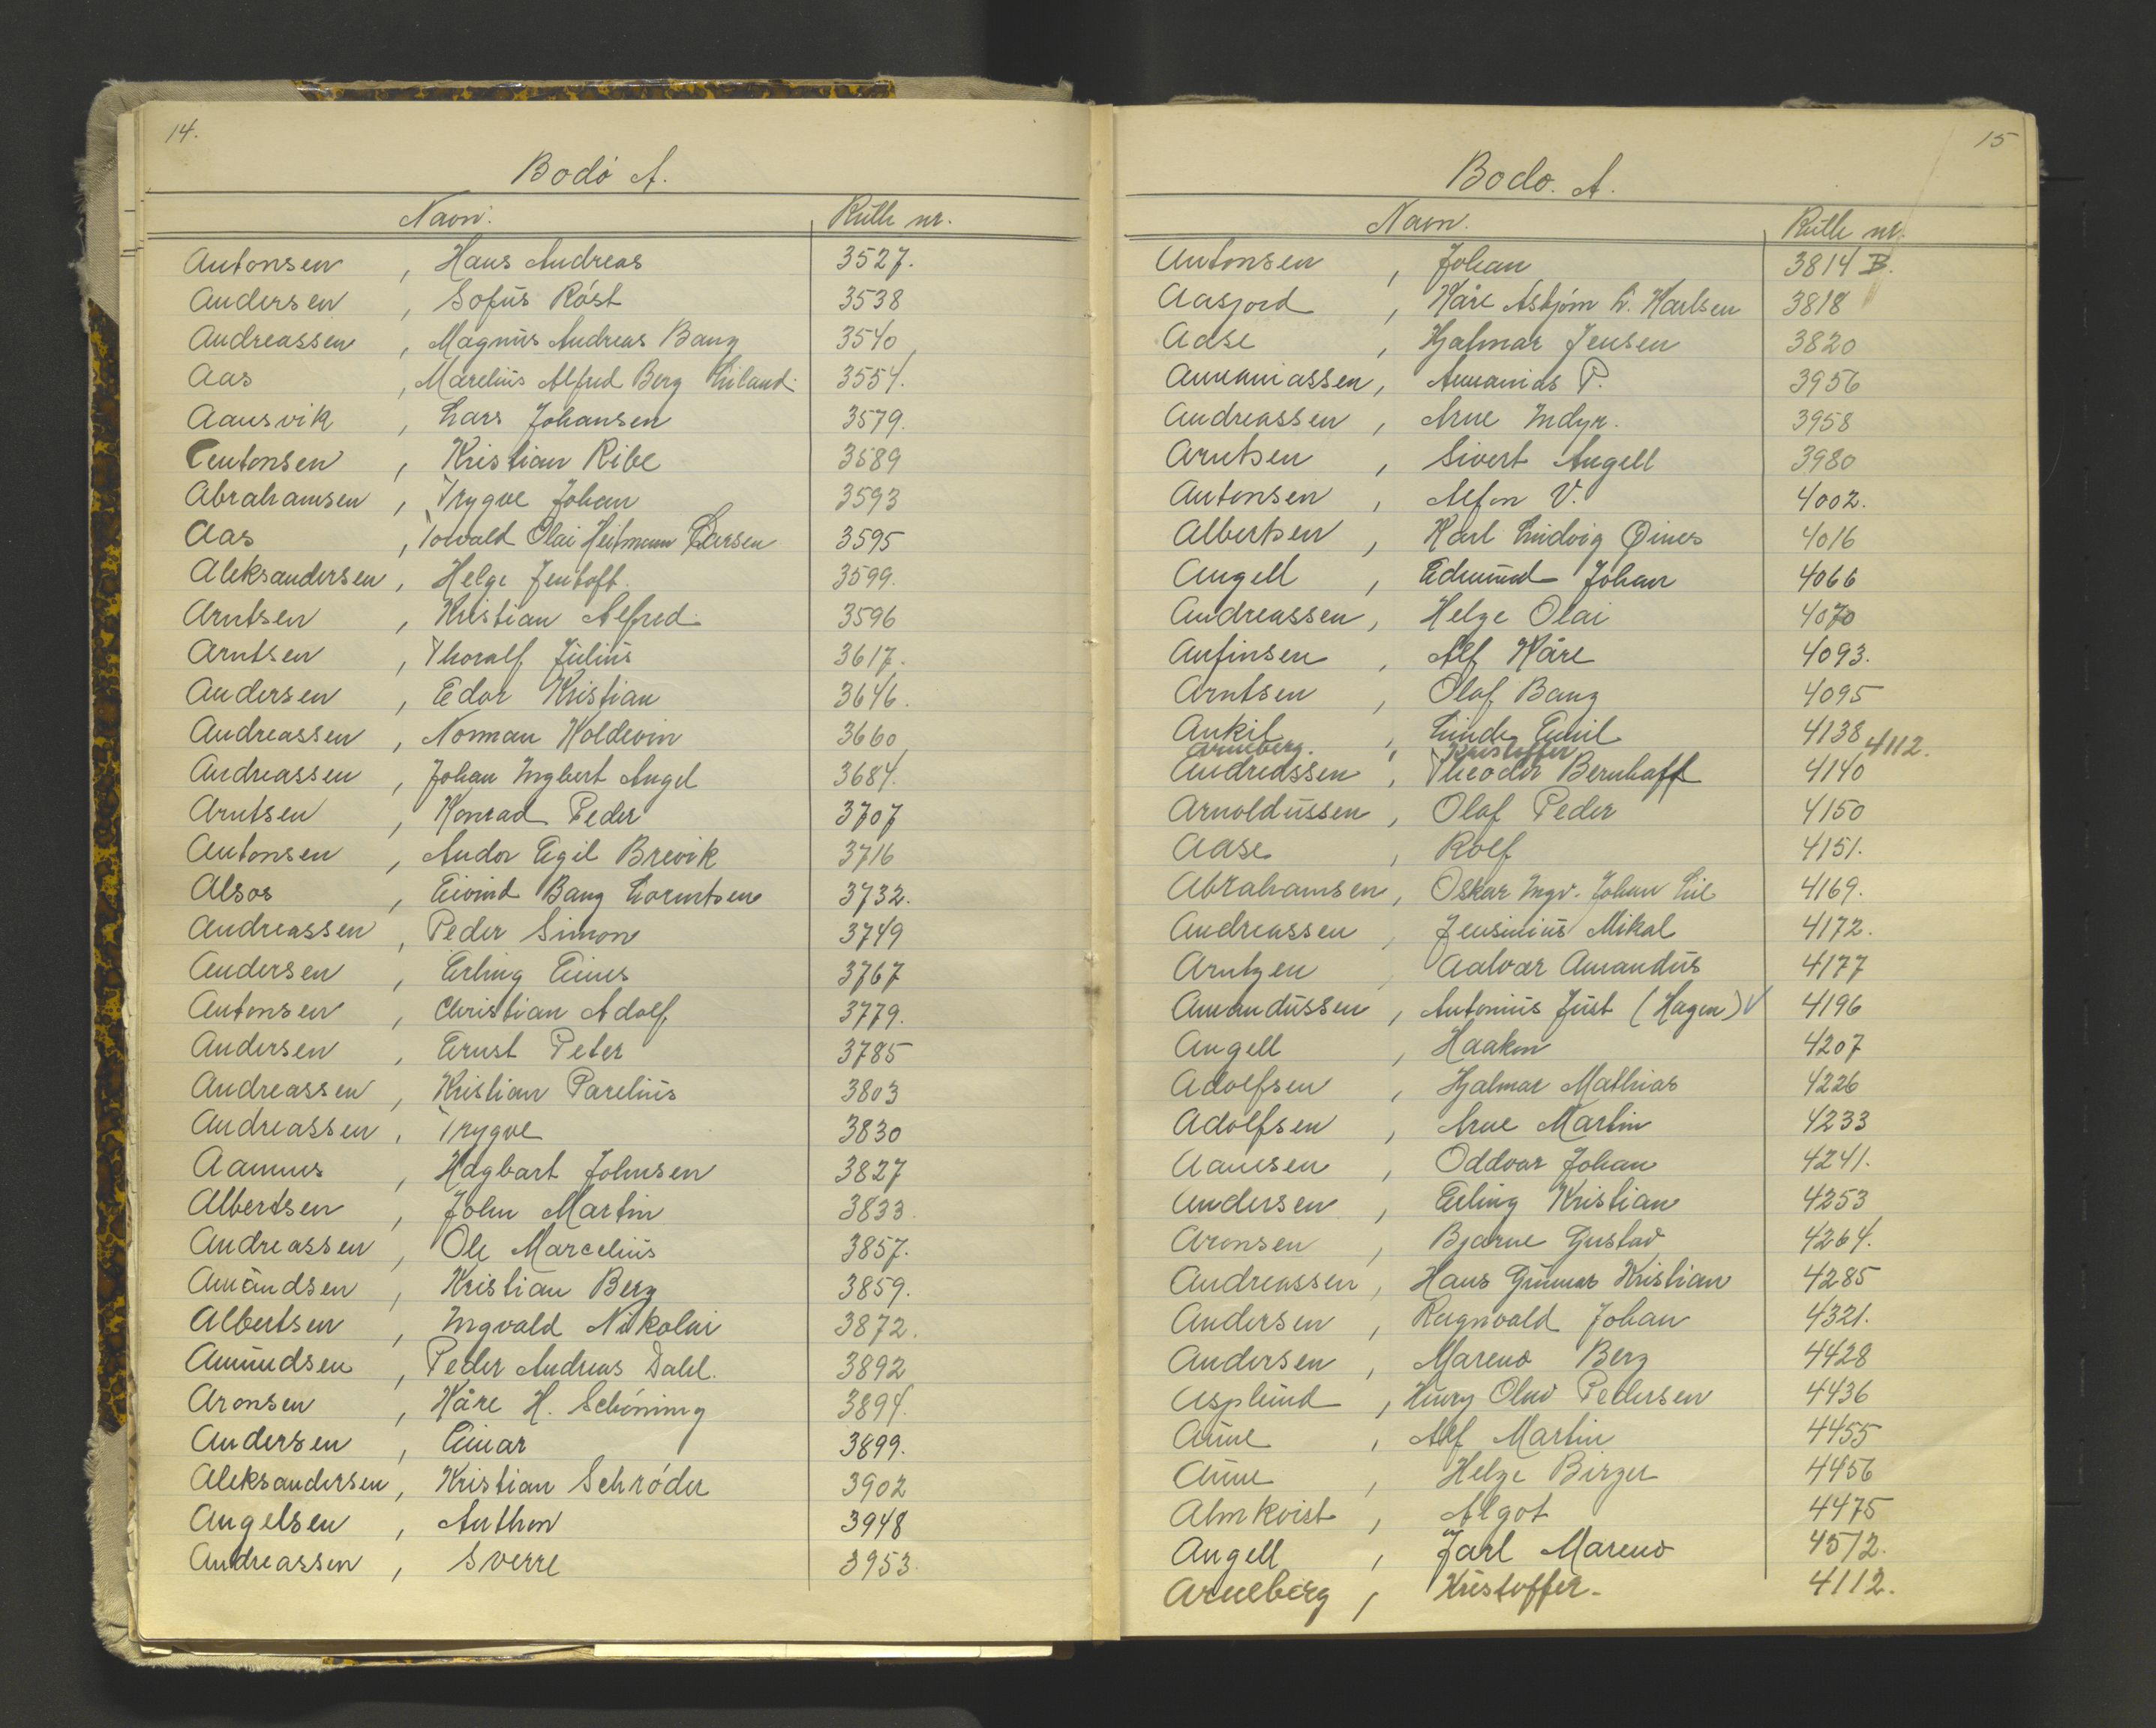 14.
Bodø A.
Navn. Rulle nr.
Antonsen, Hans Andreas 3527.
Andersen, Sofus Røst 3538
Andreassen, Magnus Andreas Bang 3540
Aas, Marelius Alfred Berg Eiland. 3554.
Aansvik, Lars Johansen 3579.
Antonsen, Kristian Ribe 3589
Abrahamsen, Trygve Johan 3593
Aas, Torvald Olai Heitmann Larsen 3595
Aleksandersen, Helge Jentoft. 3599.
Arntsen, Kristian Alfred 3596
Arntsen, Thoralf Julius 3617.
Andersen, Edor Kristian 3646.
Andreassen, Norman Holdevin 3660
Andreassen, Johan Ingbert Angel 3684.
Arntsen, Konrad Peder 3707
Antonsen, Andor Egil Brevik 3716
Alsos, Eivind Bang Lorentsen 3732.
Andreassen, Peder Simon 3749
Andersen, Erling Eines 3767
Antonsen, Christian Adolf 3779.
Andersen, Ernst Peter 3785
Andreassen, Kristian Parelius 3803
Andreassen, Trygve 3830
Aamnes, Hagbart Johnsen 3827
Albertsen, John Martin 3833
Andreassen, Ole Marcelius 3857.
Amandsen, Kristian Berg 3859.
Albertsen, Ingvald Nikolai 3872.
Amundsen, Peder Andreas Dahl. 3892
Aronsen, Kåre H. Schöning 3894.
Andersen, Einar 3899.
Aleksandersen, Kristian Schrøder 3902
Angelsen, Anthon 3948
Andreassen, Sverre 3953.
15
Bodø. A.
Navn. Rulle nr.
Antonsen, Johan 3814 B.
Aasjord, Kåre Asbjørn L. Karlsen 3818
Aase, Hjalmar Jensen 3820
Annaniassen, Annanias P. 3956
Andreassen, Arne Indyr. 3958
Arntsen, Sivert Angell 3980
Antonsen, Alfon V. 4002.
Albertsen, Karl Ludvig Øines 4016
Angell, Edmund Johan 4066
Andreassen, Helge Olai 4070
Anfinsen, Alf Kåre 4093.
Arntsen, Olaf Bang 4095
Ankil, Linde Emil 4138
Arneberg, Kristoffer 4112.
Andreassen, Theodor Bernhoft 4140
Arnoldussen, Olaf Peder 4150
Aase, Rolf 4151.
Abrahamsen, Oskar Ingv. Johan Lie 4169.
Andreassen, Jensinius Mikal 4172.
Arntzen, Aalvar Amandus 4177
Amandussen, Antonius Just (Hagen) ✓ 4196
Angell, Haakon 4207
Adolfsen, Hjalmar Mathias 4226
Adolfsen, Arne Martin 4233
Aanesen, Oddvar Johan 4241.
Andersen, Erling Kristian 4253
Aronsen, Bjarne Gustav 4264.
Andreassen, Hans Gunnar Kristian 4285
Andersen, Ragnvald Johan 4321.
Andersen, Mareno Berg 4428
Asplund, Henry Olav Pedersen 4436
Aune, Alf Martin 4455
Aune, Helge Birger 4456
Almkvist, Algot 4475
Angell, Jarl Mareno 4512.
Arneberg, Kristoffer. 4112.